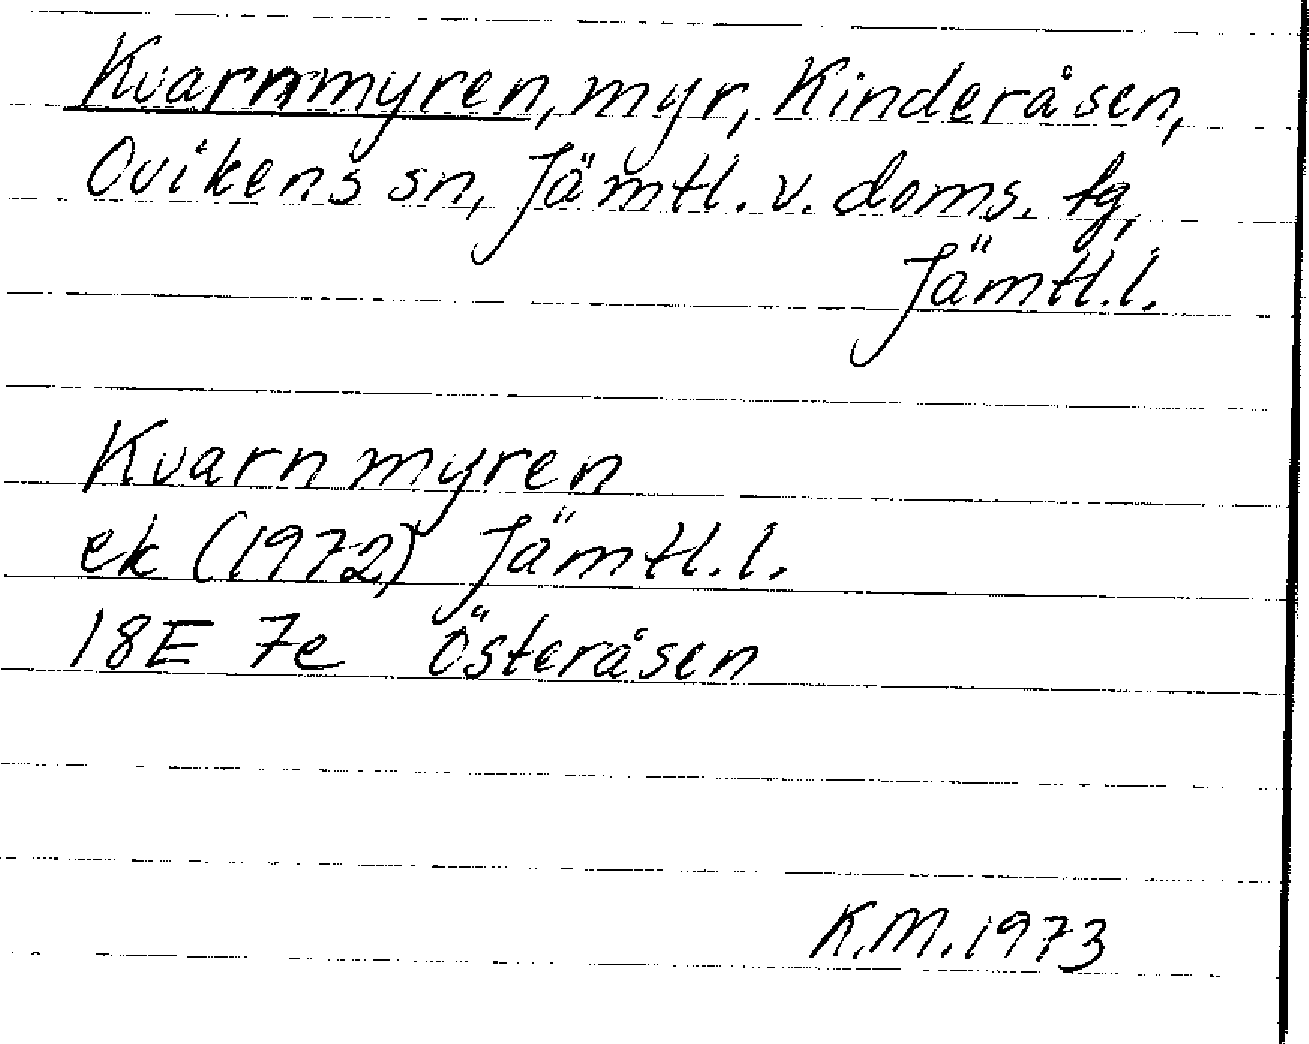 Kvarnmyren, myr, Kinderåsen,
Ovikens sn, Jämtl. v. doms. tg,
Jämtl. l.
Kvarnmyren
ek (1972) Jämtl. l.
18E 7e Österåsen
K.M. 1973